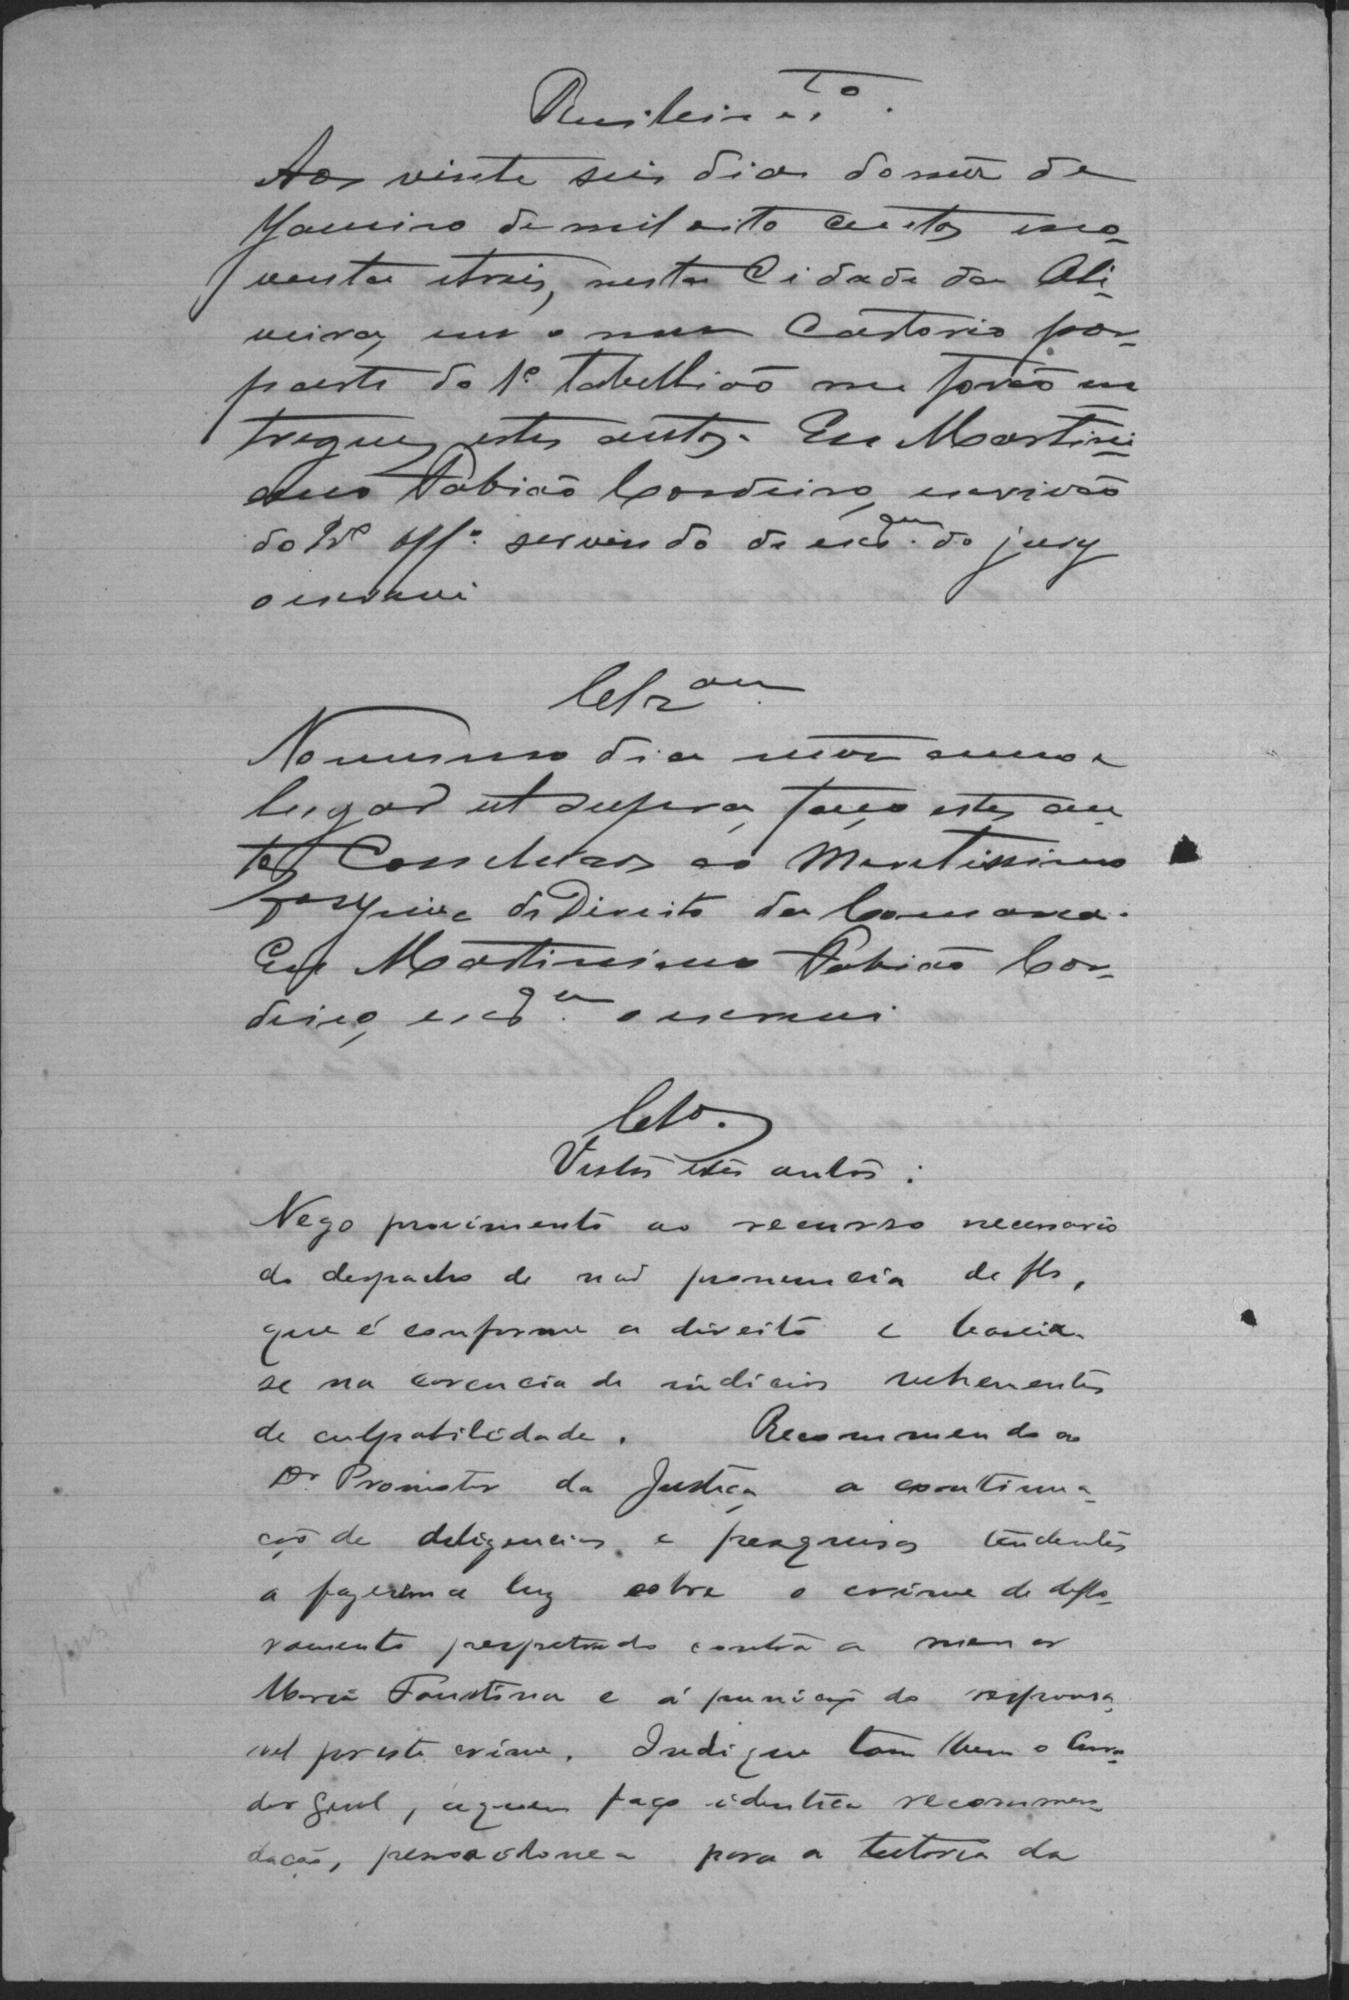 Aos vinte seis dias do mez de
Janeiro de mil oito centos no-
venta e tres, nesta Cidade da Oli-
veira, em o meu Cartorio por
parte do 1º Tabellião me forão en
tregues estes autos. Eu Martini-
ano Fabião Cordeiro, escrivão
do 2º offº servindo de escᵐ do jury
o escrevi
Clzᵃᵐ
No mesmo dia mez anno e
lugar ut supra, faço estes au
tos Conclusos ao Meretissimo
Juiz de Direito da Comarca.
Eu Martiniano Fabião Cor-
deiro, escᵐ o escrevi
Clºˢ.
Vistos estes autos:
Nego provimento ao recurso necessario
do despacho de não pronuncia de fls,
que é conforme a direito e baseia-
se na carencia de indicios vehementes
de culpabilidade. Recommendo ao
Dr Promotor da Justiça a continua-
ção de diligencias e pesquisas tendentes
a fazerem a luz sobre o crime de deflo-
ramento perpetrado contra a menor
Maria Faustina e á punição do responsa-
vel por este crime. Indique tambem o Cura-
dor Geral, a quem faço identica recommen-
dação, pessoa idonea para a tutoria da